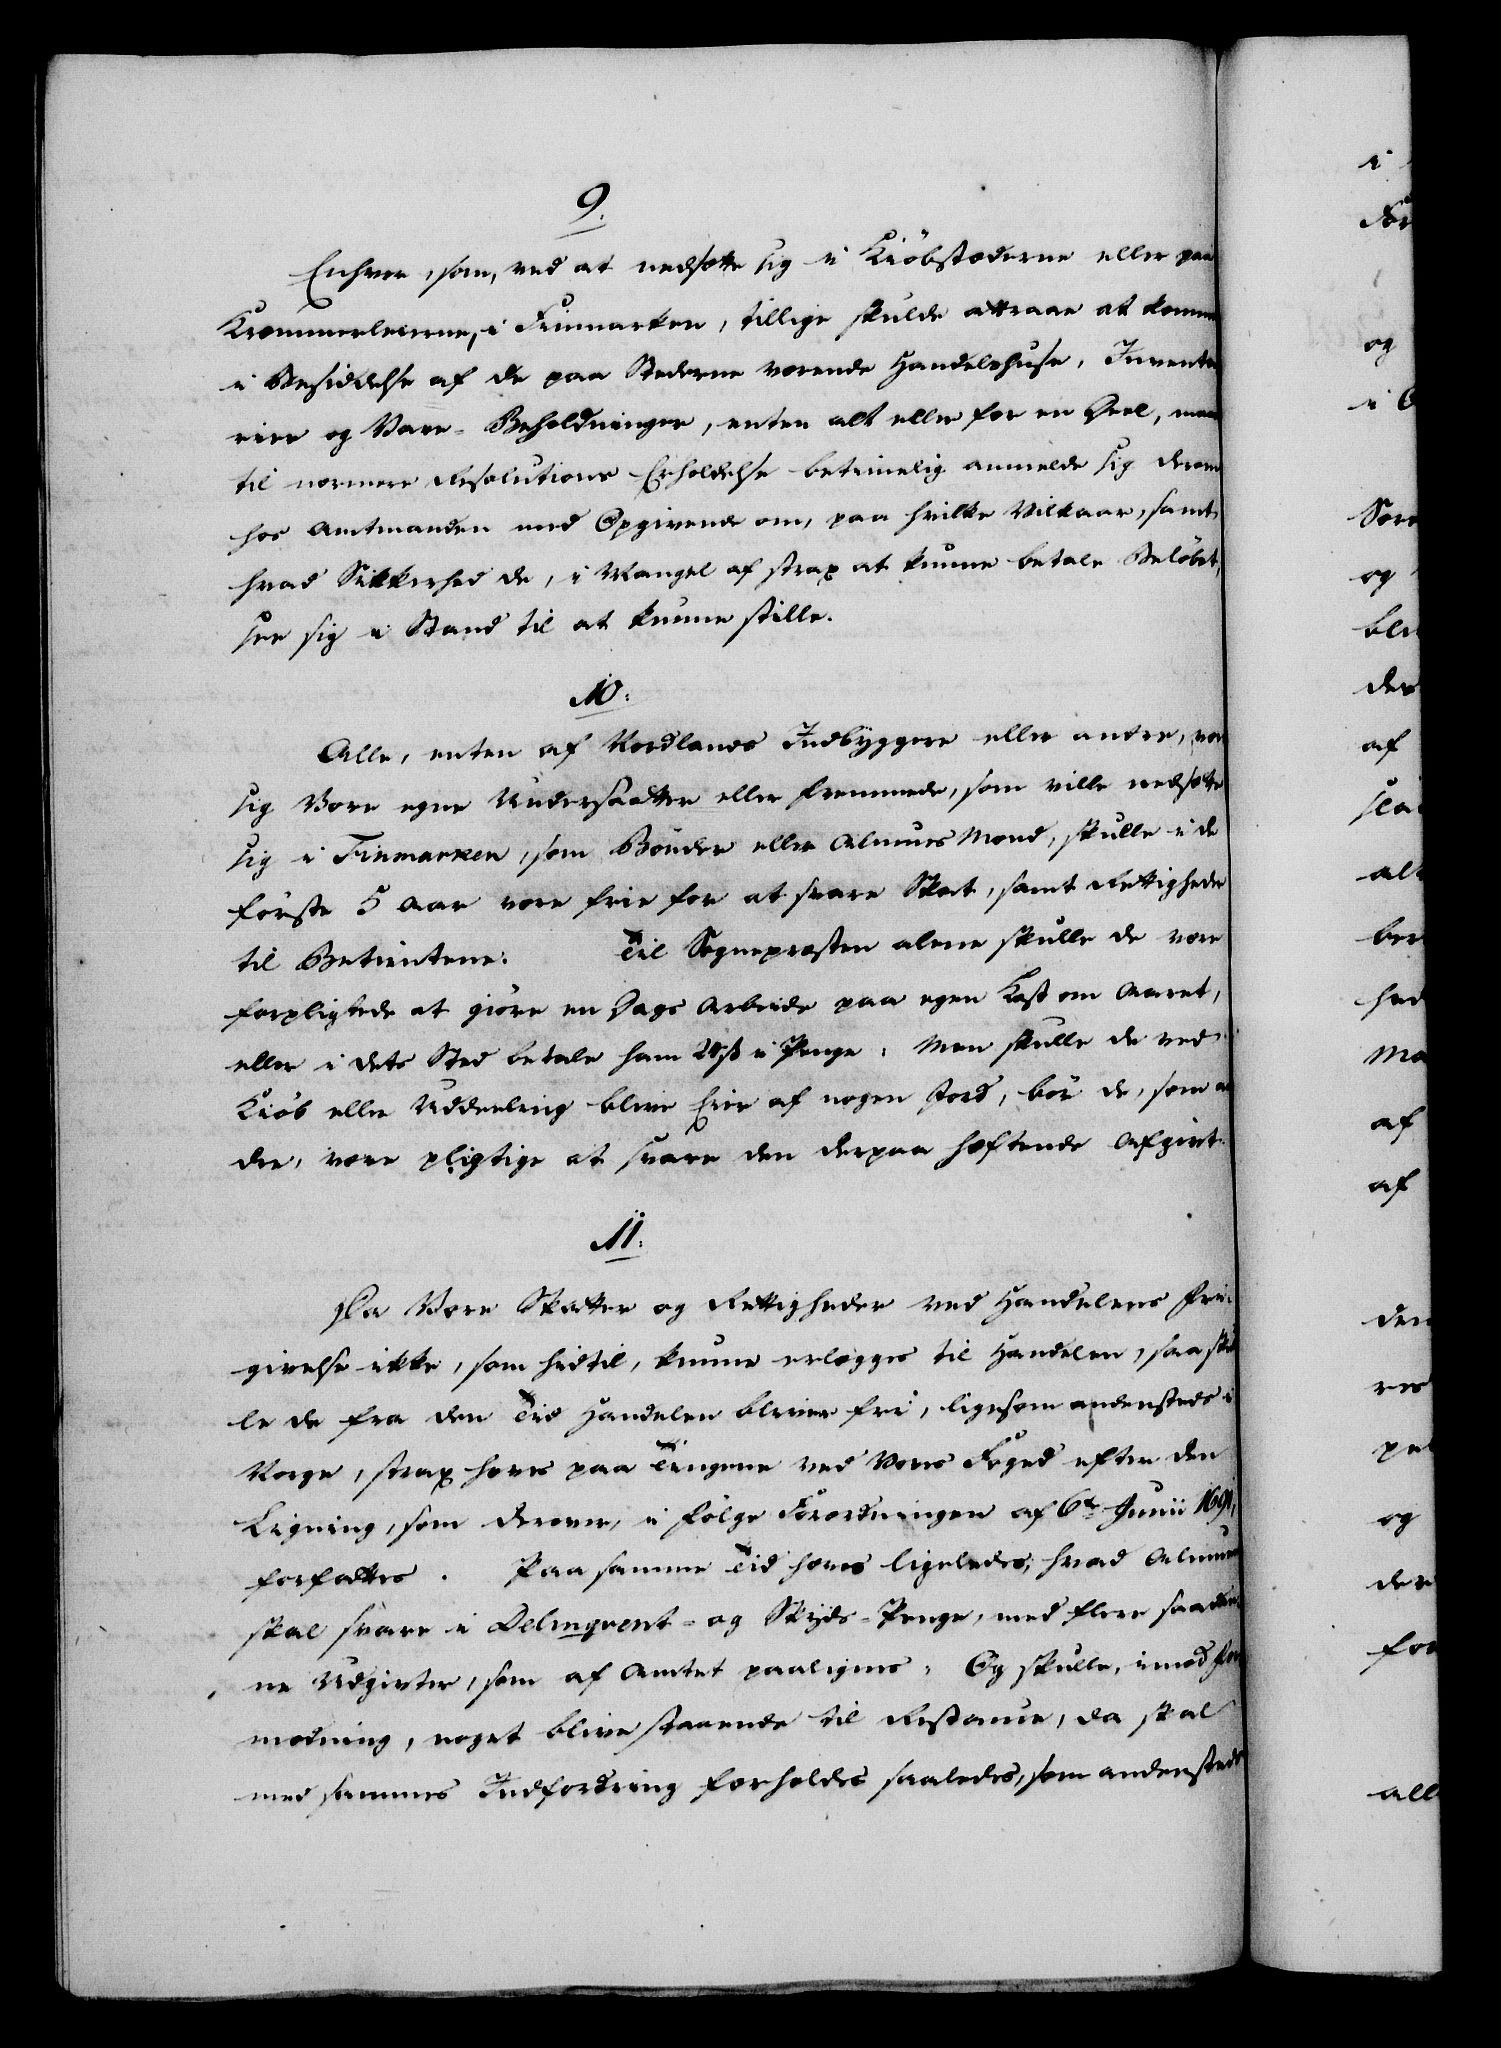 9.
Enhver, som, ved at nedsætte sig i Kiöbstæderne eller paa
Kræmmerleierne, i Finmarken, tillige skulde attraae at komme
i Besiddelse af de paa Stederne værende Handelshuse, Inventa
rier og Vare-Beholdninger, enten alt eller for en Deel, maae
til nærmere Resolutions Erholdelse betimelig anmelde sig derom
hos Amtmanden med Opgivende om, paa hvilke Vilkaar, samt
hvad Sikkerhed de, i Mangel af strax at kunne betale Belöbet,
see sig i Stand til at kunne stille.
10.
Alle, enten af Nordlands Indbyggere eller andre, være
sig Vore egne Undersaatter eller fremmede, som ville nedsætte
sig i Finmarken, som Bönder eller Almues Mænd, skulle i de
förste 5 Aar være frie for at svare Skat, samt Rettigheder
til Betientene. Til Sognepræsten alene skulle de være
forpligtede at giöre en Dags Arbeide paa egen Kost om Aaret,
eller i dets Sted betale ham 24 ß i Penge; Men skulle de ved
Kiöb eller Uddeeling blive Eier af nogen Jord, bör de, som an
dre, være pligtige at svare den derpaa hæftende Afgivt.
11.
Da Vore Skatter og Rettigheder ved Handelens fri-
givelse ikke, som hidtil, kunne erlægges til Handelen, saa skul
le de fra den Tid Handelen bliver fri, ligesom andensteds i
Norge, strax hæves paa Tingene ved Vores Foged efter den
Ligning, som derover, i fölge Forordningen af 6te Junii 1691,
forfattes. Paa samme Tid hæves ligeledes, hvad Almuen
skal svare i Delinqvent- og Skyds-Penge, med flere saadan
ne Udgivter, som af Amtet paalignes. Og skulle, imod for
modning, noget blive staaende til Restance, da skal
med sammes Indfordring forholdes saaledes, som andensteds